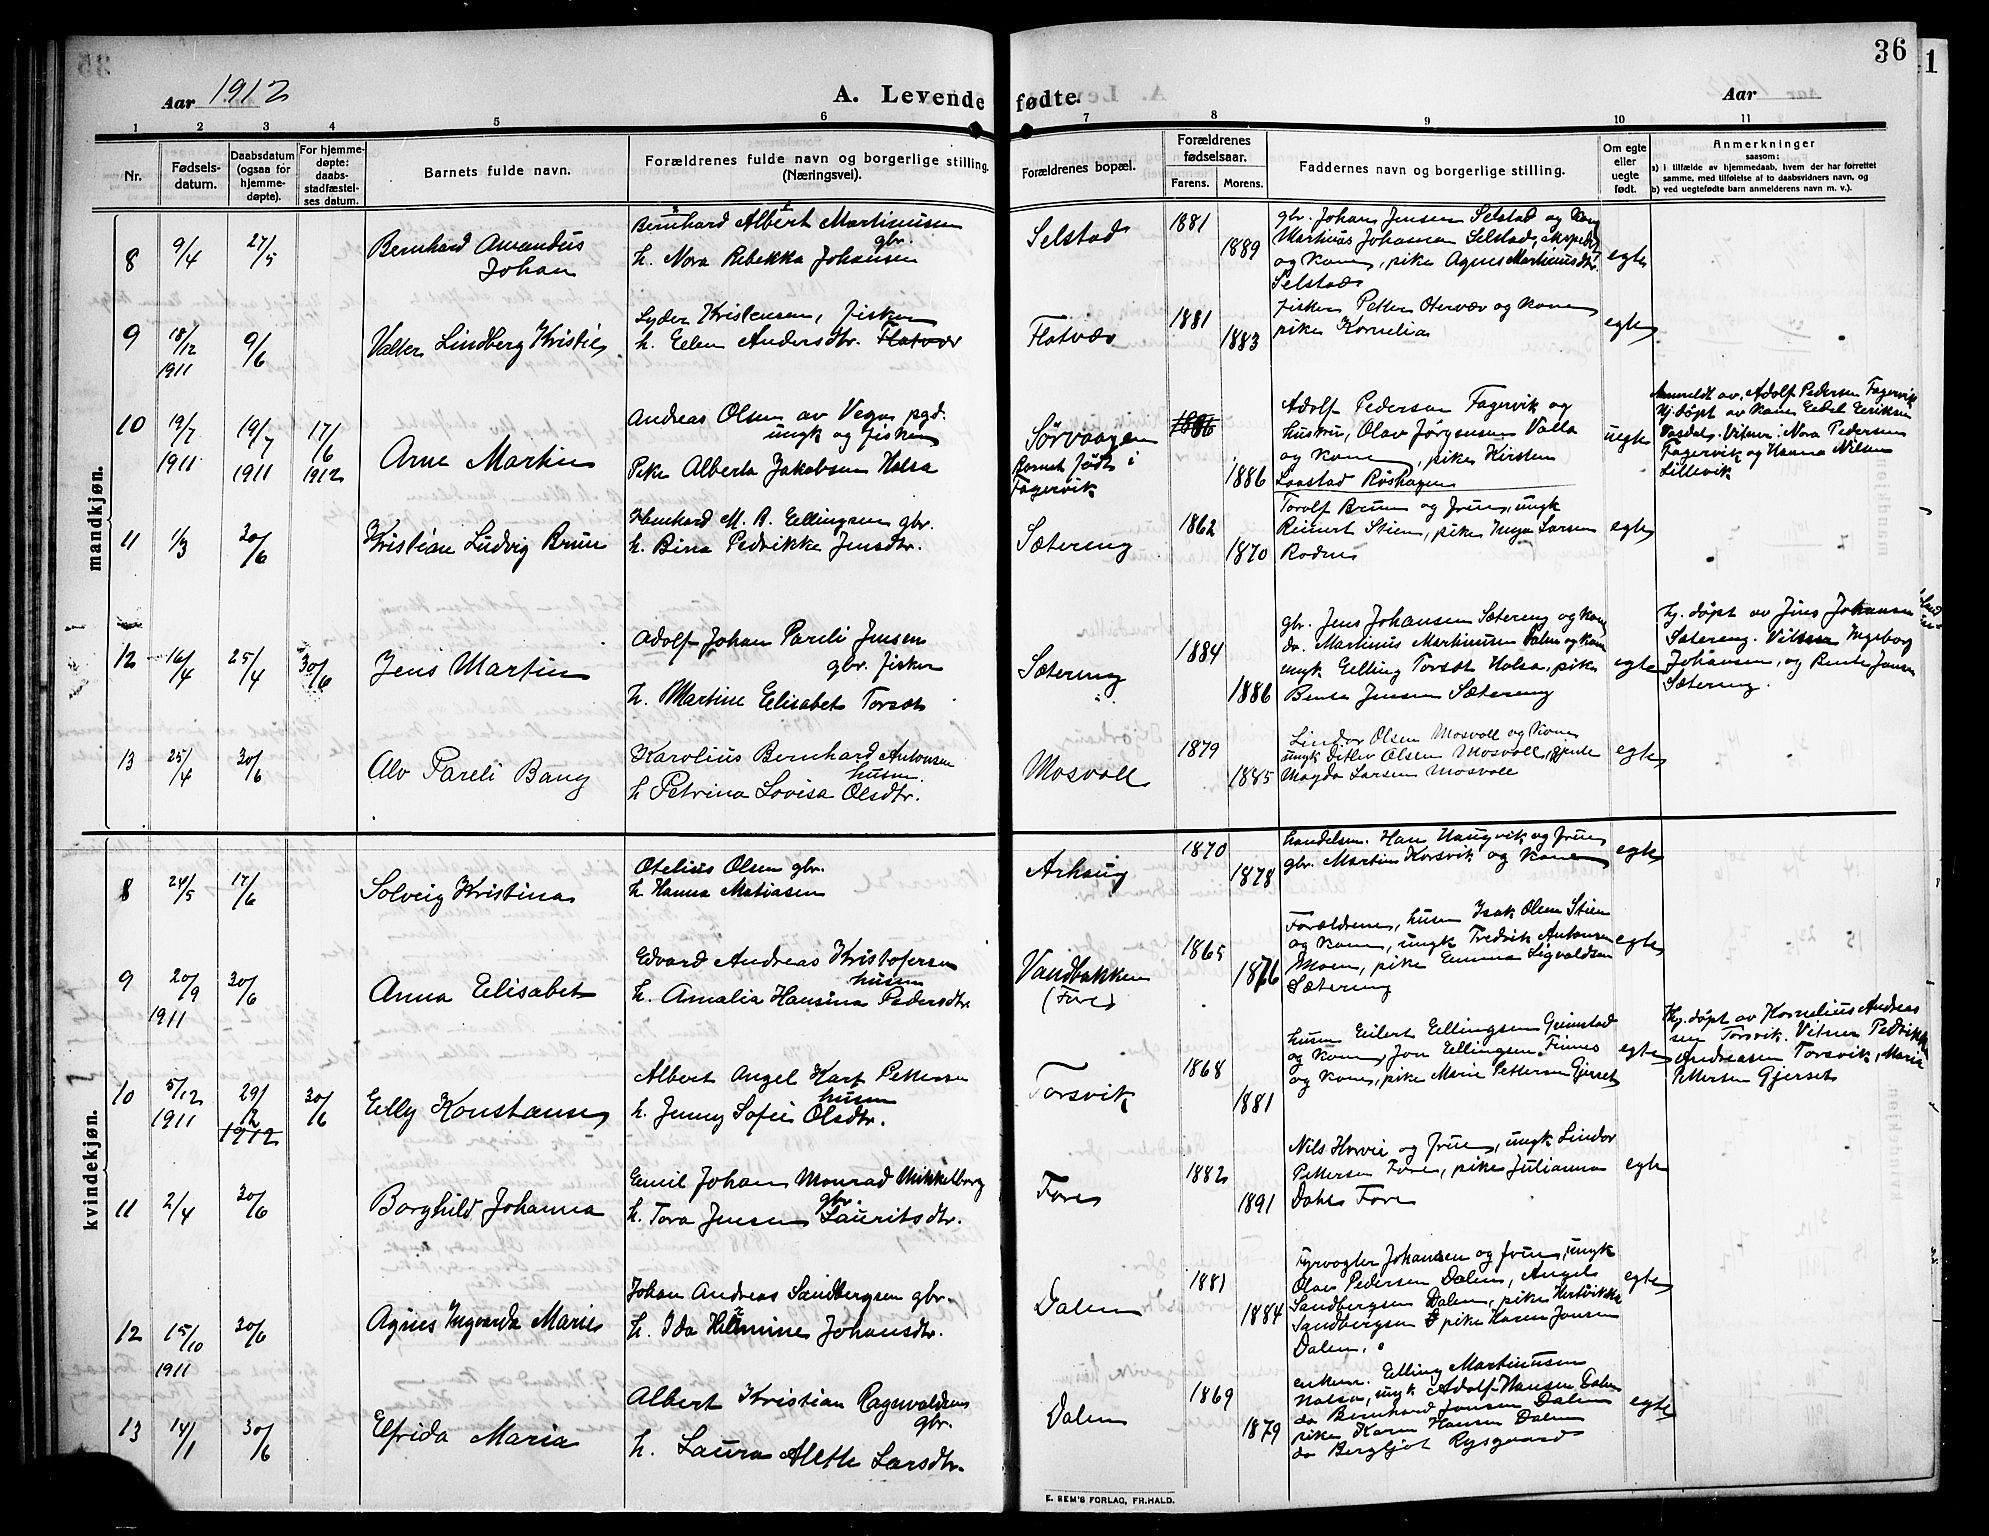 35
36
1
Aar 1912
A. Levende fødte.
Aar
1 2 3 4 5 6 7 8 9 10 11
Nr.
Fødsels-
datum.
Daabsdatum
(ogsaa for
hjemme-
døpte).
For hjemme-
døpte:
daabs-
stadfæstel-
ses datum.
Barnets fulde navn.
Forældrenes fulde navn og borgerlige stilling.
(Næringsvei).
Forældrenes bopæl.
Forældrenes
fødselsaar.
Farens. Morens.
Faddernes navn og borgerlige stilling.
Om egte
eller
uegte
født.
Anmerkninger
saasom:
a) i tilfælde av hjemmedaab, hvem der har forrettet
samme, med tilføielse af to daabsvidners navn, og
b) ved uegtefødte barn anmelderens navn m. v.).
mandkjøn.
8 9/4 27/5
Bernhard Amandus
Johan
Bernhard Albert Martinusen
gbr.
h. Nora Rebekka Johansen
Selstad
1881
1889
gbr. Johan Jensen Selstad og kone
Martinus Johansen Selstad, ekspedit
og kone, pike Agnes Martinusdtr.
Selstad
egte
9 18/12 9/6
1911
Valter Lindberg Kristie
Lyder Kristensen, fisker
h. Ellen Andersdtr. Flatvær
Flatvær
1881
1883
fisker Petter Otervær og kone
pike Kornelia
egte
10 19/7 19/7 17/6
1911 1911 1912
Arne Martin
Andreas Olsen av Vega pgd.
ungk og fisker
Pike Alberta Jakobsen Holsa
Sørvaagen
Barnet født i
Fagervik
1886
1886
Adolf Pedersen Fagervik og
hustru, Olav Jørgensen Valla
og kone, pike Kirsten
Laastad Røshagen
uegte
Anmeldt av Adolf Pedersen Fagervik
Hj. døpt av kone Edel Eriksen
Vasdal. Vitner: Nora Pedersen
Fagervik og Hanna Nilsen
Lillevik
11 1/3 30/6
Kristian Ludvig Brun
Henhard M. B. Ellingsen gbr.
h. Bina Pedrikke Jensdtr.
Sætereng
1862
1870
Torolf Brun og frue, ungk
Reinert Stien, pike Inga Larsen
Rødnes
egte
12 16/4 25/4 30/6
Jens Martin
Adolf Johan Pareli Jensen
gbr. fisker
h. Martine Elisabet Torsdt
Sætereng
1884
1886
gbr. Jens Johansen Sætereng og kone
do. Martinus Martinusen Dalen og kone
ungk Elling Torsdt Holsa, pike
Benta Jensen Sætereng
egte
hj. døpt av Jens Johansen
Sætereng. Vitner Ingeborg
Johansen, og Bente Jensen
Sætereng.
13 25/4 30/6
Alv Pareli Bang
Karolius Bernhard Antonsen
husm.
h Petrina Lovisa Olsdtr.
Mosvoll
1879
1885
Lindor Olsen Mosvoll og kone
ungk Ditlev Olsen Mosvoll, pike
Magda Larsen Mosvoll
egte
kvindekjøn.
8 24/5 17/6
Solveig Kristina
Otelius Olsen gbr.
h Hanna Matiasen
Arhaug
1870
1878
handelsm. Hans Haugvik og frue
gbr. Martin Korsvik og kone
egte
9 20/9 30/6
1911
Anna Elisabet
Edvard Andreas Kristofersen
husm
h. Amalia Hansina Pedersdtr.
Vandbakken
(Fore)
1865
1876
Forældrene, husm Isak Olsen Stien
og kone, ungk Fredrik Antonsen
Moen, pike Emma Sigvaldsen
Sætereng
egte
10 5/12 29/2 30/6
1911 1912
Elly Konstanse
Albert Angel Karf Pettersen
husm
h. Jenny Sofie Olsdtr.
Torsvik
1868
1881
husm Eilert Ellingsen Grimstad
og kone, Jon Ellingsen Finnes
og kone, pike Marie Pettersen Gjerset
egte
Hj. døpt av Kornelius Andreas
sen Torsvik. Vitner Pedrikke
Andreasen Torsvik, Marie
Pettersen Gjerset.
11 2/4 30/6
Borghild Johanna
Emil Johan Monrad Mikkelborg
gbr.
h. Tora Jensen Lauritsdtr.
Fore
1882
1891
Nils Horvei og frue, ungk Lindor
Pettersen Fore, pike Julianna
Dahl Fore
egte
12 15/10 30/6
1911
Agnes Ingvarda Marie
Johan Andreas Sandbergsen gbr.
h. Ida Hermine Johansdtr.
Dalen
1881
1884
Fyrvogter Johansen og frue, ungk
Olaus Pedersen Dalen, Angel
Sandbergsen Dalen, pike Hertvikke
Sandbergsen pike Karen Jensen
Dalen.
egte
13 14/1 30/6
Elfrida Maria
Albert Kristian Ragnvaldsen
gbr.
h. Laura Alette Larsdtr.
Dalen
1869
1879
enkem. Elling Martinusen
Halsa, ungk Adolf Hansen Dalen
do Bernhard Jensen Dalen
pike Karen Hansen Dalen
do Bergljot Rysgaard
egte
E. SEM'S FORLAG, FR.HALD.